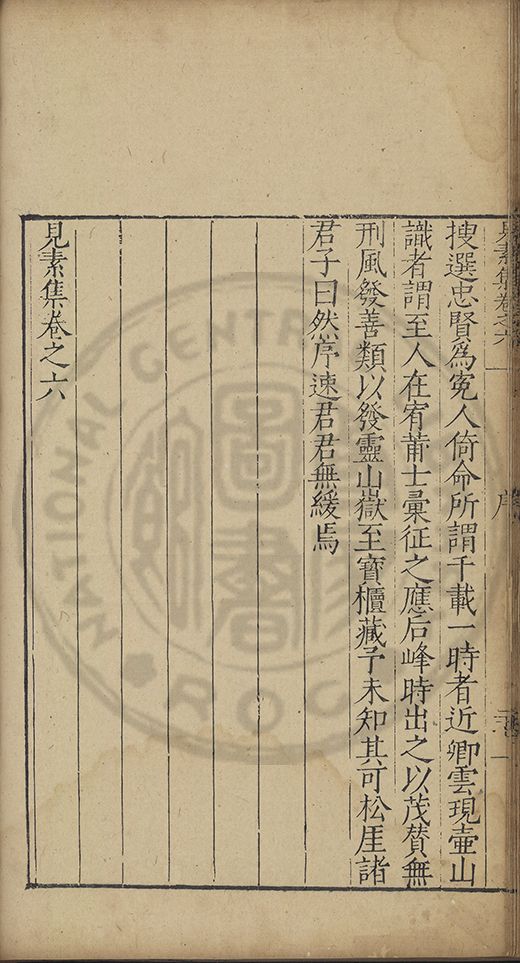 見素集卷之六
序
搜選忠賢為寃人倚命所謂千載一時者近卿雲現壺山
識者謂至人在宥莆士彚征之應后峰時出之以茂贊無
刑風發善類以發靈山嶽至寶櫃藏予未知其可松厓諸
君子曰然序速君君無緩焉
見素集卷之六